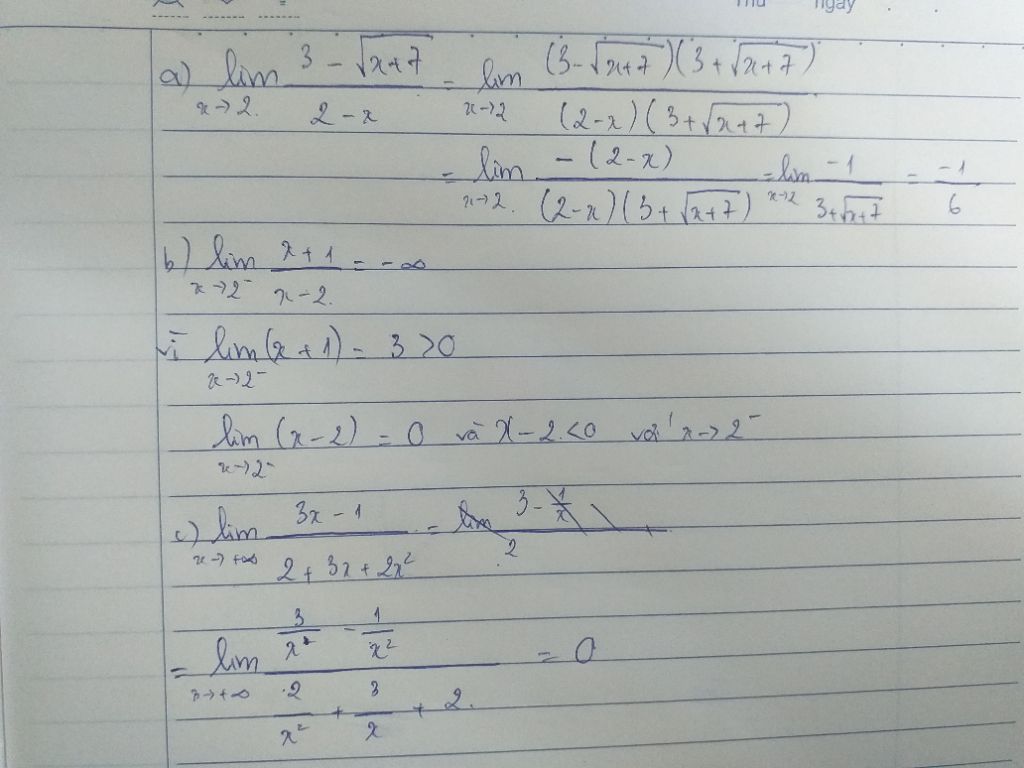 Thứ ngày
a) lim_{x→2} (3 - √(x+7))/(2 - x) = lim_{x→2} ((3 - √(x+7))(3 + √(x+7)))/((2-x)(3+√(x+7)))
= lim_{x→2} (-(2-x))/((2-x)(3+√(x+7))) = lim_{x→2} (-1)/(3+√(x+7)) = (-1)/6
b) lim_{x→2⁻} (x+1)/(x-2) = -∞
vì lim_{x→2⁻} (x+1) = 3 >0
lim_{x→2⁻} (x-2) = 0 và x-2<0 với x→2⁻
c) lim_{x→+∞} (3x - 1)/(2 + 3x + 2x²) =
= lim_{x→+∞} (3/x - 1/x²)/(2/x² + 3/x + 2) = 0